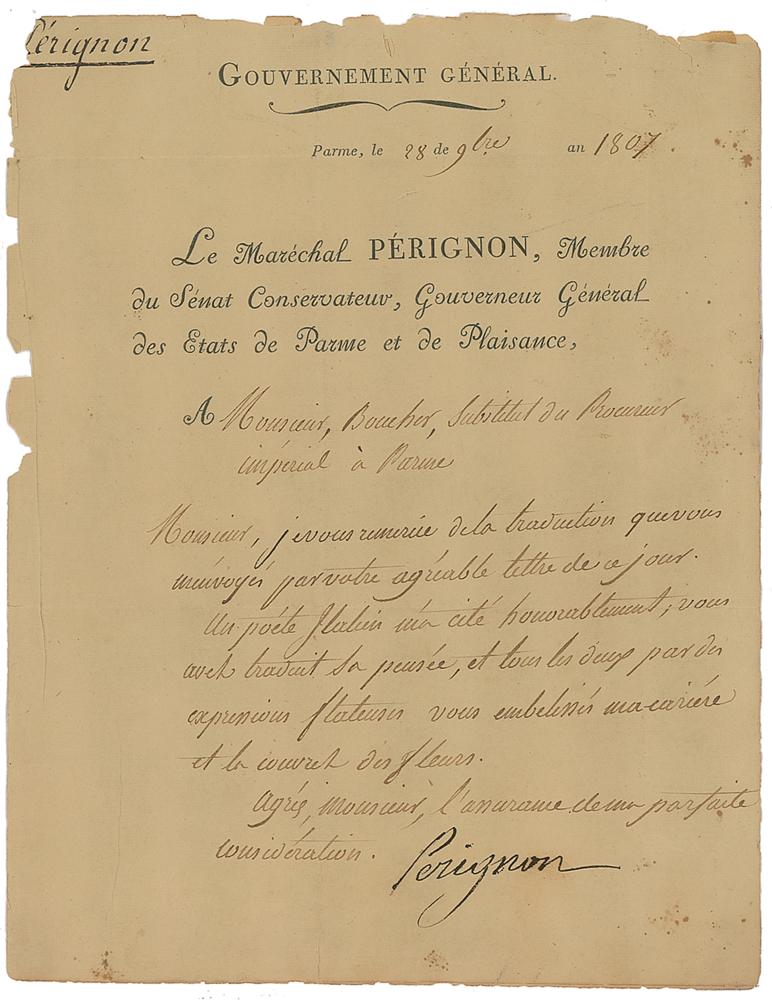 Pérignon
GOUVERNEMENT GÉNÉRAL.
Parme, le 28 de 9bre an 1807.
Le Maréchal PÉRIGNON, Membre
du Sénat Conservateur, Gouverneur Général
des Etats de Parme et de Plaisance,
A Monsieur, Boucher, Substitut du Procureur
impérial à Parme
Monsieur, je vous remercie de la traduction que vous
m'envoyés par votre agréable lettre de ce jour.
Un poéte Italien m'a cité honorablement, vous
avet traduit sa pensée, et tous les deux par des
expressions flateuses vous embelissés ma cariére
et la couvret des fleurs.
Agrés, monsieur, l'assurance de ma parfaite
considération.
Perignon